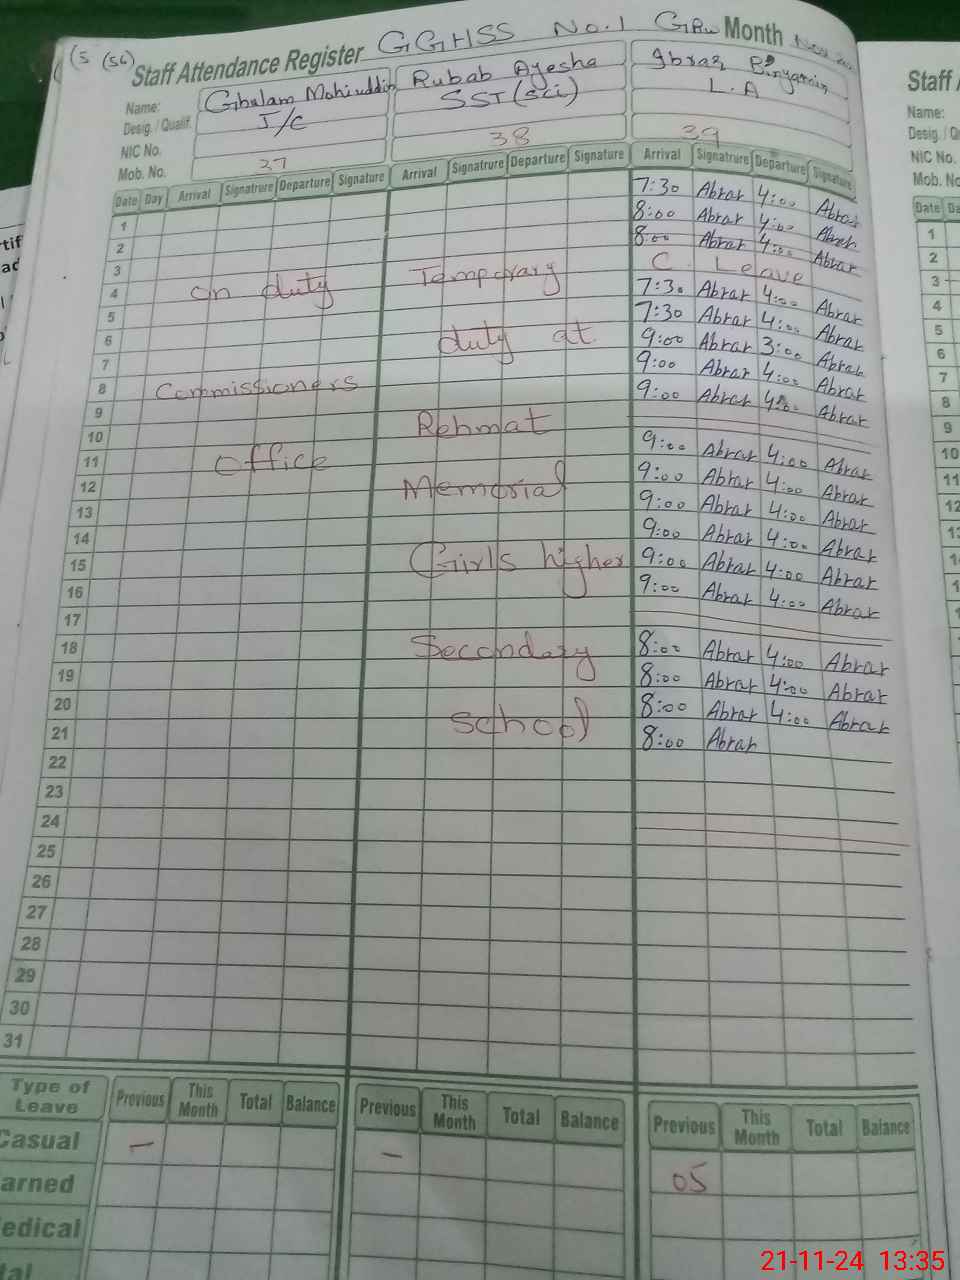 (5 (56)
Staff Attendance Register GGHSS No.1 Month
Name: Ghulam Mohiuddin Rubab Ayesha
Desig. / Qualif. J/C SST (sci) L.A
NIC No.
Mob. No. 37 38 39
Date Day Arrival Signatrure Departure Signature Arrival Signatrure Departure Signature Arrival Signatrure Departure Signature
1 7:30 Abrar 4:00 Abrar
2 8:00 Abrar 4:00 Abrar
3 8:00 Abrar 4:00 Abrar
4 C. Leave
5 7:30 Abrar 4:00 Abrar
6 7:30 Abrar 4:00 Abrar
7 9:00 Abrar 3:00 Abrar
8 9:00 Abrar 4:00 Abrar
9 9:00 Abrar 4:00 Abrar
10
11 9:00 Abrar 4:00 Abrar
12 9:00 Abrar 4:00 Abrar
13 9:00 Abrar 4:00 Abrar
14 9:00 Abrar 4:00 Abrar
15 9:00 Abrar 4:00 Abrar
16 9:00 Abrar 4:00 Abrar
17
18 8:00 Abrar 4:00 Abrar
19 8:00 Abrar 4:00 Abrar
20 8:00 Abrar 4:00 Abrar
21 8:00 Abrar
22
23
24
25
26
27
28
29
30
31
on duty
Commissioners
Office
Temporary
duty at
Rehmat
Memorial
Girls higher
Secondary
School
Type of Leave Previous This Month Total Balance Previous This Month Total Balance Previous This Month Total Balance
Casual - - 05
arned
edical
tal
Staff
Name:
NIC No.
Mob. No.
Date
1
2
3
4
5
6
7
8
9
10
11
12
21-11-24 13:35